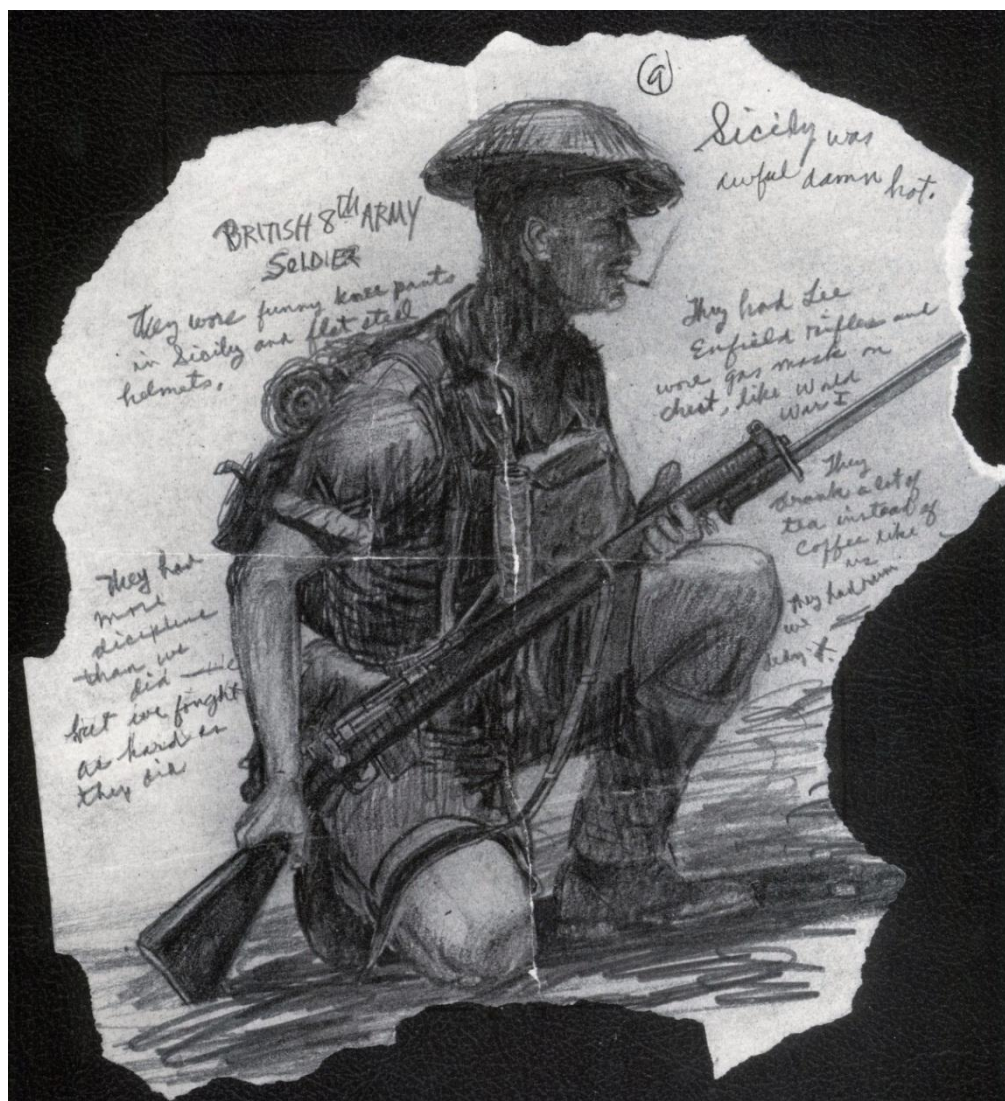 9
Sicily was
awful damn hot.
BRITISH 8TH ARMY
SOLDIER
They wore funny knee pants
in Sicily and flat steel
helmets.
They had Lee
Enfield rifles and
wore gas mask on
chest, like World
War I
They
drank a lot of
tea instead of
coffee like
us
they had rum
we
They had
more
discipline
than we
did —
but we fought
as hard as
they did